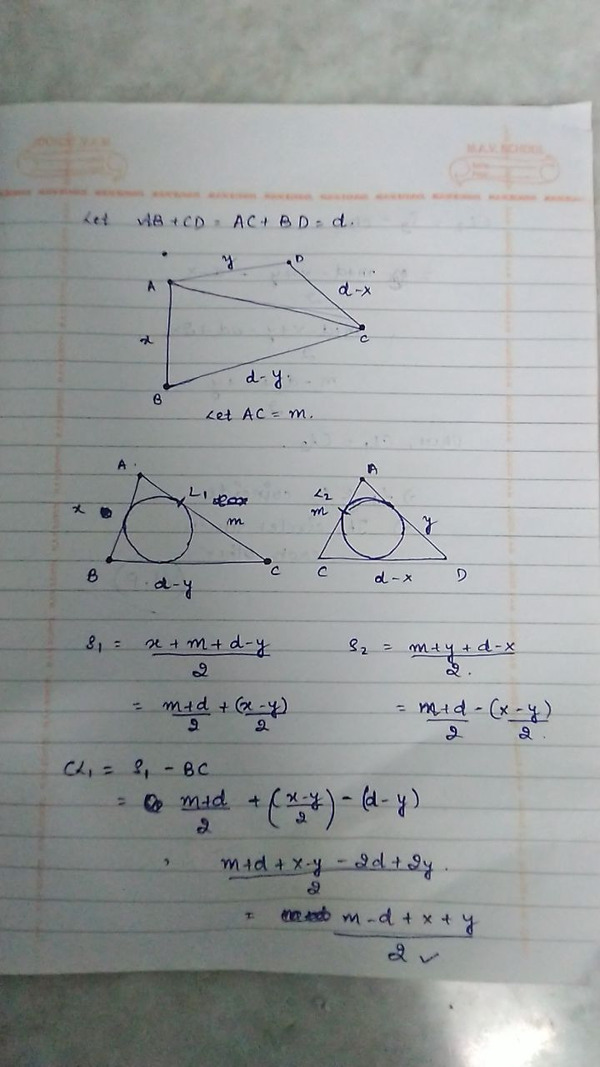 Let AB + CD = AC + BD = d.
y
D
A
d-x
x
C
d-y.
B
Let AC = m.
A
L1
x
m
B
d-y
C
A
L2
m
y
C
d-x
D
S1 = x + m + d-y / 2
= m+d / 2 + (x-y) / 2
S2 = m+y + d-x / 2.
= m+d / 2 - (x-y) / 2.
CL1 = S1 - BC
= m+d / 2 + (x-y / 2) - (d-y)
m+d + x-y - 2d + 2y. / 2
= m-d + x + y / 2 ✓